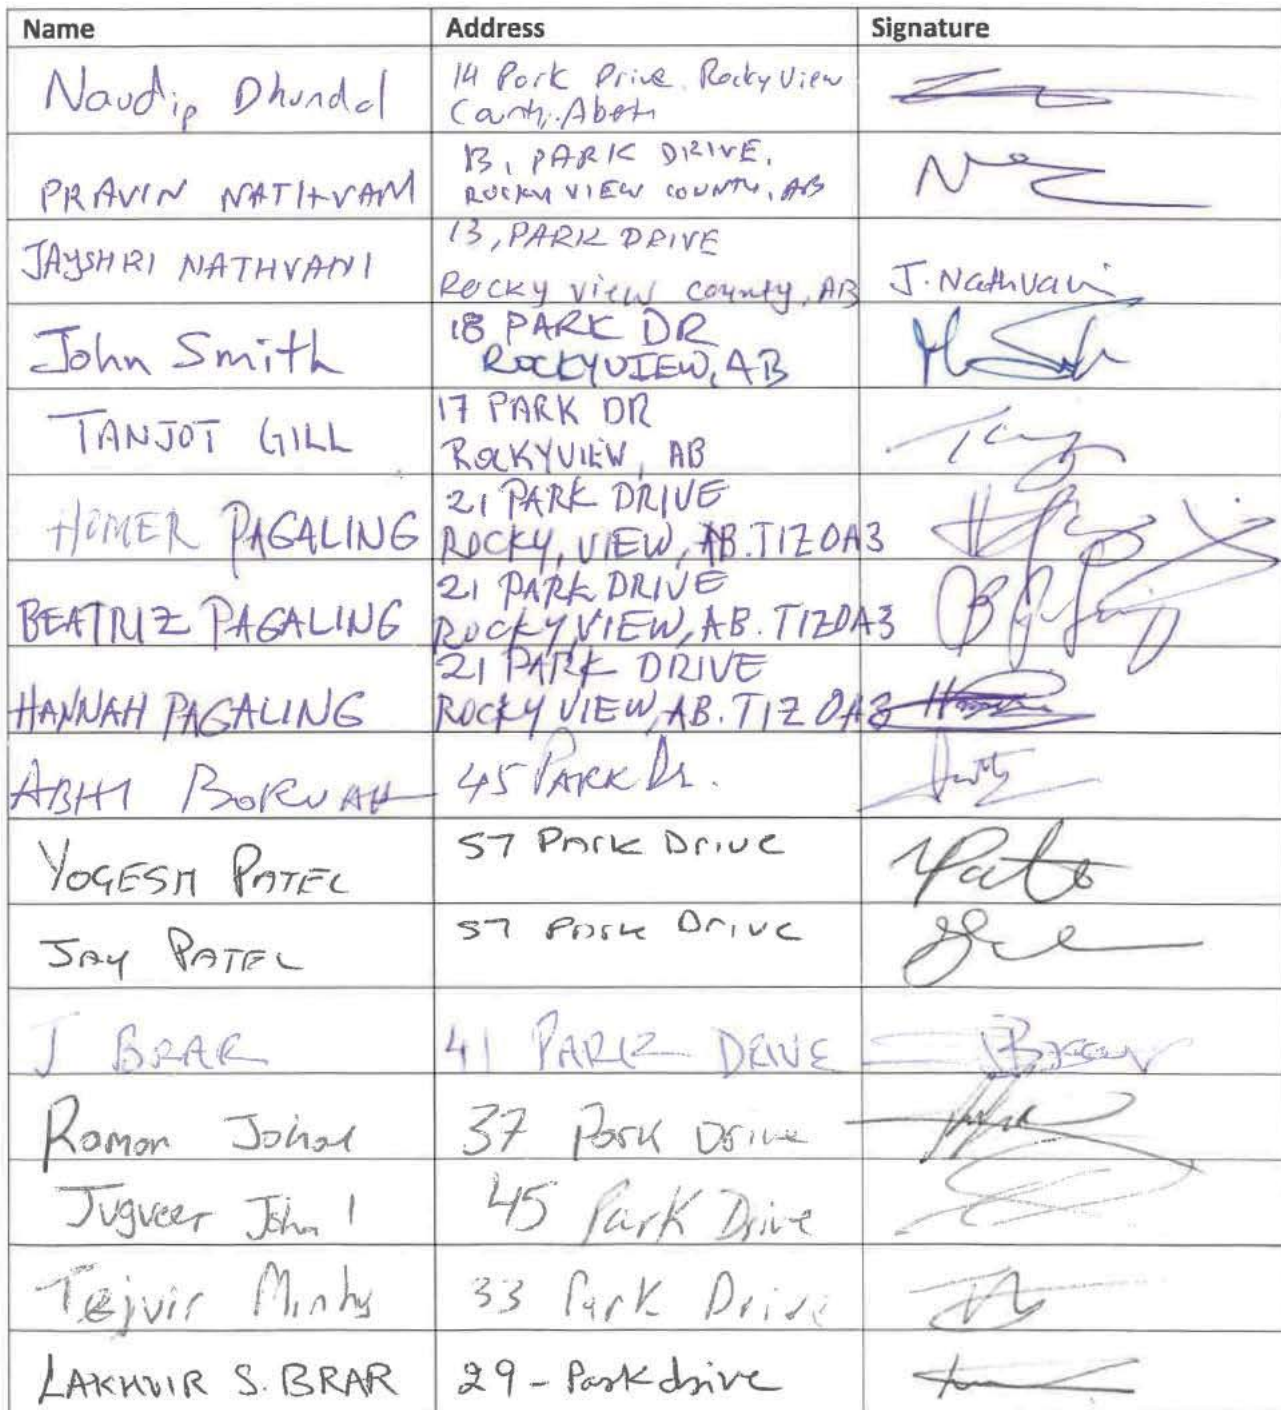 Name Address Signature
Naudip Dhundal 14 Park Drive. Rocky View
County. 
PRAVIN NATHVANI 13, PARK DRIVE,
ROCKY VIEW COUNTY, AB
JAYSHRI NATHVANI 13, PARK DRIVE
ROCKY VIEW County, AB J. Nathvani
John Smith 18 PARK DR
ROCKYVIEW, AB
TANJOT GILL 17 PARK DR
ROCKYVIEW, AB
HOMER PAGALING 21 PARK DRIVE
ROCKY, VIEW, AB. T1Z0A3
BEATRIZ PAGALING 21 PARK DRIVE
ROCKY, VIEW, AB. T1Z0A3
HANNAH PAGALING 21 PARK DRIVE
ROCKY VIEW, AB. T1Z 0A3
ABHI BORUAH 45 PARK Dr.
YOGESH PATEL 57 Park Drive
JAY PATEL 57 Park Drive
J BRAR 41 PARK DRIVE
Raman Johal 37 Park Drive
Jugveer 45 Park Drive
Tejvir 33 Park Drive
LAKHVIR S. BRAR 29 - Park drive